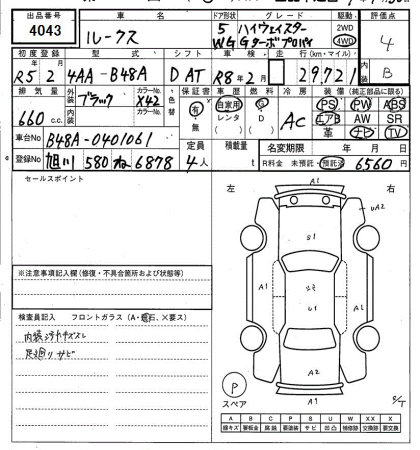 出品番号 車名 ドア形状 グレード 駆動 評価点
4043 ルークス 5 ハイウェイスター 2WD 4
WG Gターボプロパイ 4WD
初度登録 型式 シフト 車検 走行(km・マイル) 内装
R5 2 4AA-B48A D AT R8年2月 29,721 B
排気量 外装 ブラック カラーNo. X42 色替 保証書 車歴 燃料 冷房 装備(純正部品に限る)
660 c.c. 内装 カラーNo. 有 無 自家用 レンタ G D AC PS PW ABS
エアB AW SR
革 ナビ TV
車台No B48A-0401061 定員 積載量 名変期限 年 月 日
登録No 旭川 580 ね 6878 4人 t R料金 未預託・預託済 6560円
セールスポイント
左 右
A1
UA2
S1
A1 A1
U1
A2
A1
A1
※注意事項記入欄(修復・不具合箇所および状態等)
検査員記入 フロントガラス(A・飛石、×要ス)
内装汚れキズスレ
足廻りサビ
P
スペア
S/T
A B W C P S U G W XX X
線キズ 要板金 腐蝕 要塗装 サビ 凹凸 補修跡 交換跡 要交換